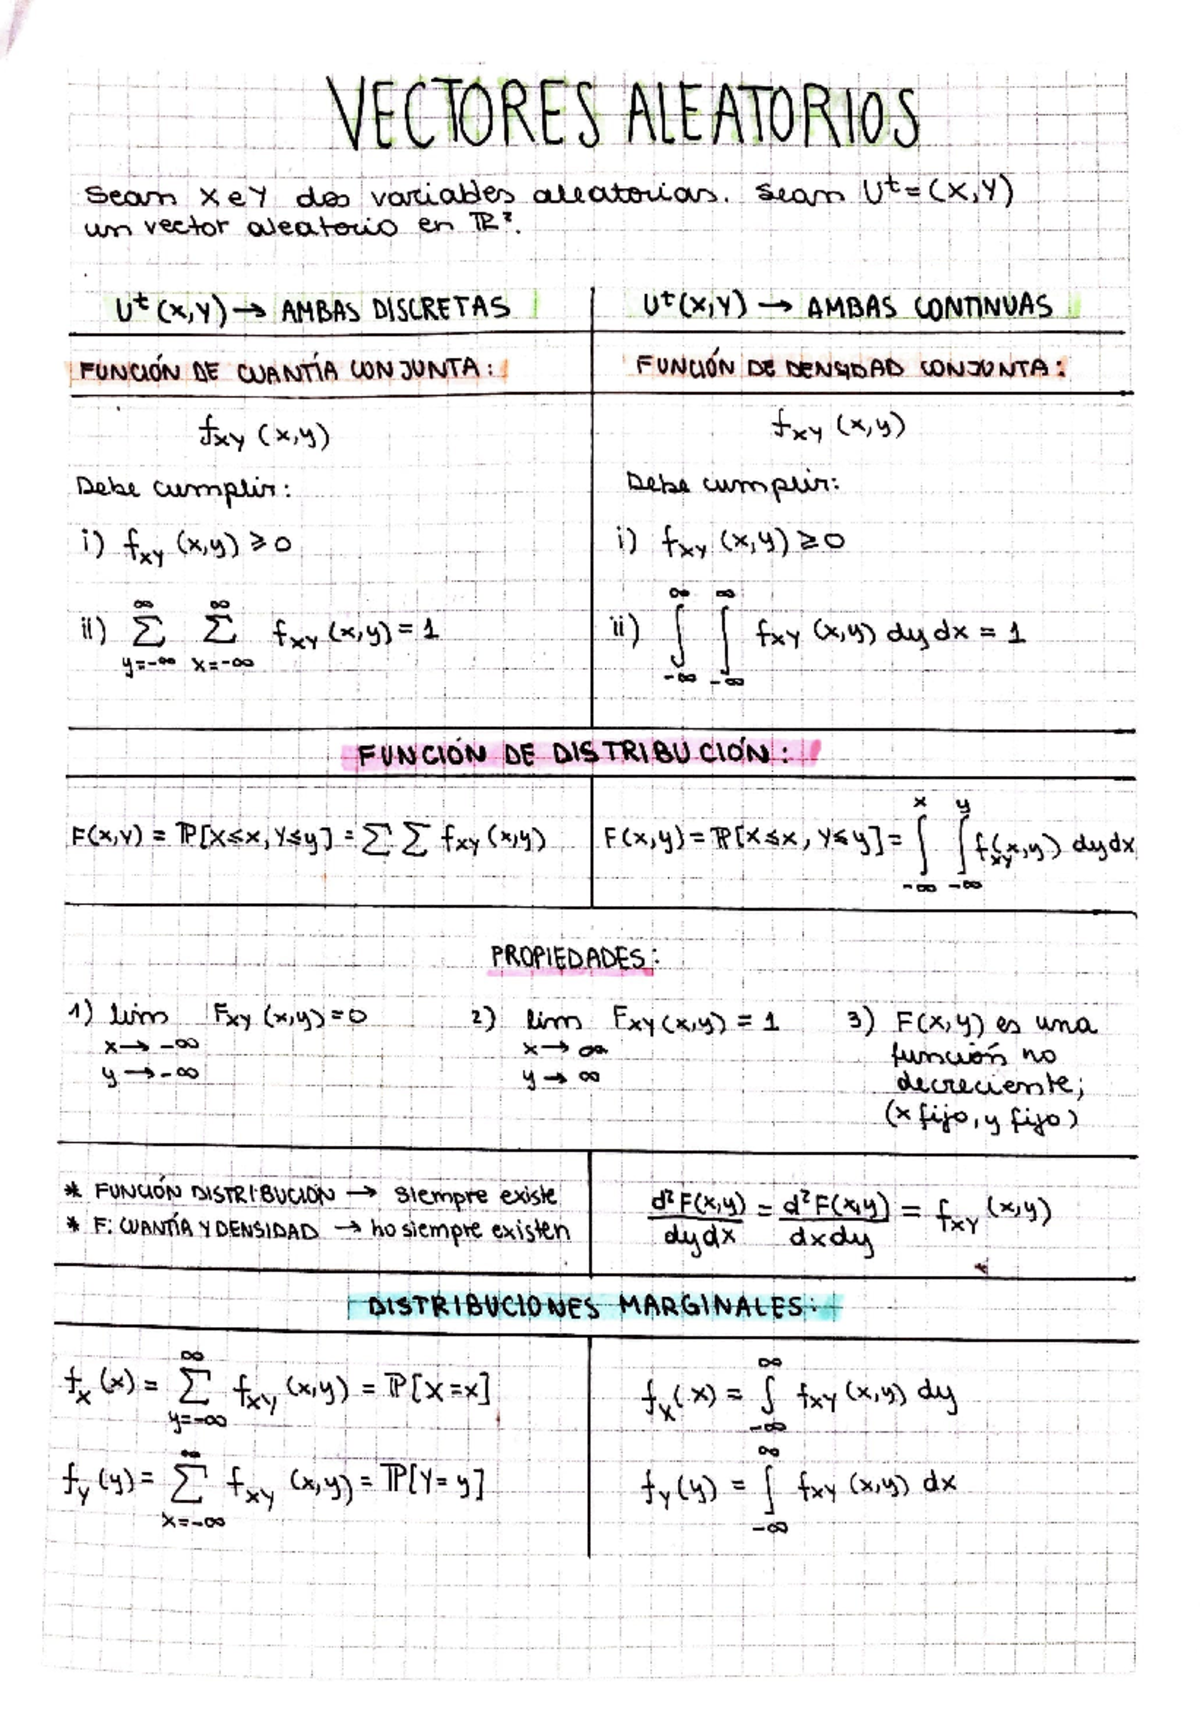 VECTORES ALEATORIOS
Sean X e Y dos variables aleatorias. Sean Uᵗ=(X,Y)
un vector aleatorio en ℝ².
Uᵗ(X,Y) → AMBAS DISCRETAS
Uᵗ(X,Y) → AMBAS CONTINUAS
FUNCIÓN DE CUANTÍA CONJUNTA:
FUNCIÓN DE DENSIDAD CONJUNTA:
f_XY (x,y)
f_XY (x,y)
Debe cumplir:
Debe cumplir:
i) f_XY (x,y) ≥ 0
i) f_XY (x,y) ≥ 0
ii) ∑_{y=-∞}^{∞} ∑_{x=-∞}^{∞} f_XY (x,y) = 1
ii) ∫_{-∞}^{∞} ∫_{-∞}^{∞} f_XY (x,y) dy dx = 1
FUNCIÓN DE DISTRIBUCIÓN:
F(x,y) = ℙ[X≤x, Y≤y] = ∑ ∑ f_XY (x,y)
F(x,y) = ℙ[X≤x, Y≤y] = ∫_{-∞}^{x} ∫_{-∞}^{y} f_XY(x,y) dy dx
PROPIEDADES:
1) lim F_XY (x,y) = 0
x → -∞
y → -∞
2) lim F_XY (x,y) = 1
x → ∞
y → ∞
3) F(x,y) es una
función no
decreciente;
(x fijo, y fijo)
* FUNCIÓN DISTRIBUCIÓN → siempre existe
* F: CUANTÍA Y DENSIDAD → no siempre existen
d²F(x,y)/dydx = d²F(x,y)/dxdy = f_XY (x,y)
DISTRIBUCIONES MARGINALES:
f_X (x) = ∑_{y=-∞}^{∞} f_XY (x,y) = ℙ[X=x]
f_X (x) = ∫_{-∞}^{∞} f_XY (x,y) dy
f_Y (y) = ∑_{x=-∞}^{∞} f_XY (x,y) = ℙ[Y=y]
f_Y (y) = ∫_{-∞}^{∞} f_XY (x,y) dx